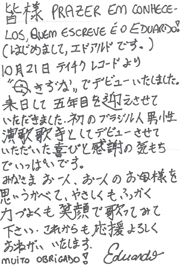 皆様 PRAZER EM CONHECE-
LOS, QUEM ESCREVE É O EDUARDO!
(はじめまして、エドアルドです。)
10月21日テイチクレコードより
"母きずな"でデビューいたしました。
来日して五年目を迎えさせて
いただきました、初のブラジル人男性
演歌歌手としてデビューさせて
いただいた喜びと感謝の気もち
でいっぱいです。
みなさまお一人、お一人のお母様を
思いうかべて、やさしくも、ふっかく
力づよくも笑顔で歌ってみて
下さい。これからも応援よろしく
おねがいいたします。
MUITO OBRIGADO! Eduardo